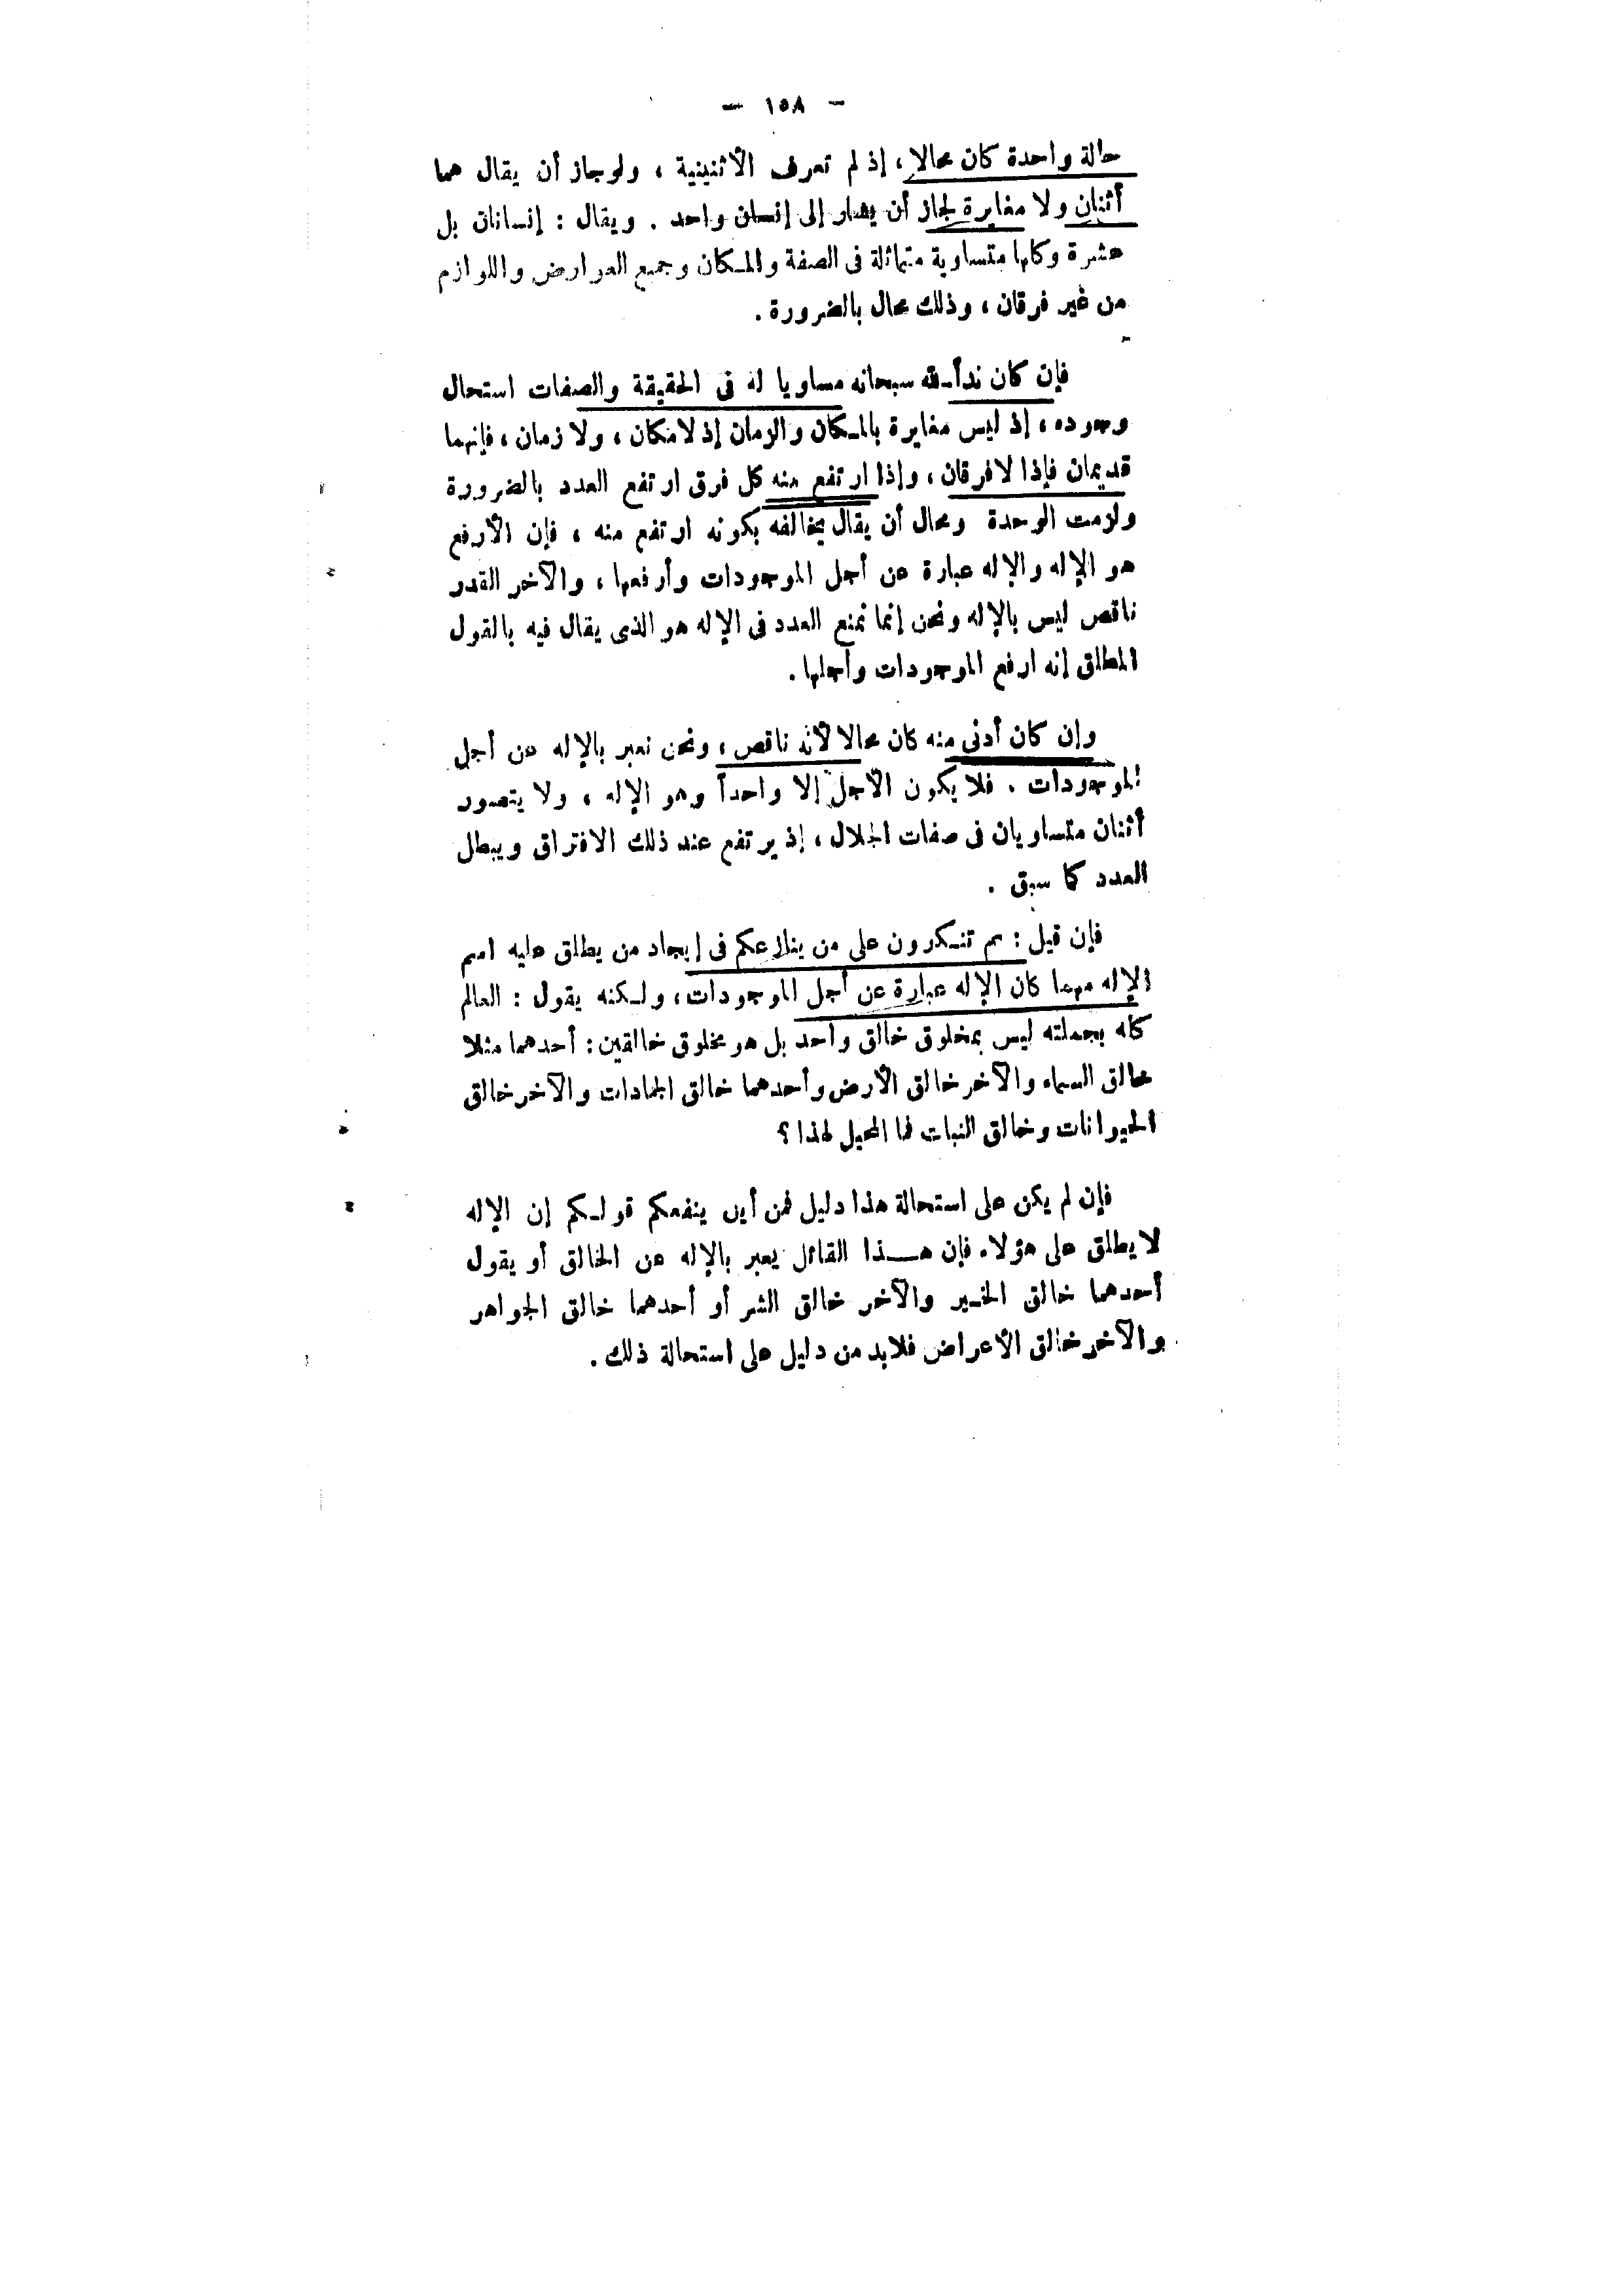 — ١٥٨ —
حالة واحدة كان محالا ، إذ لم تعرف الأثنينية ، ولو جاز أن يقال هما
أثنان ولا مغايرة لجاز أن يشار إلى إنسان واحد . ويقال : إنسانان بل
عشرة وكلها متساوية متماثلة فى الصفة والمكان وجميع العوارض واللوازم
من غير فرقان ، وذلك محال بالضرورة .
فإن كان ندأ لله سبحانه مساويا له فى الحقيقة والصفات استحال
وجوده ، إذ ليس مغايرة بالمكان والزمان إذ لا مكان ، ولا زمان ، فإنهما
قديمان فإذا لا فرقان ، وإذا ارتفع منه كل فرق ارتفع العدد بالضرورة
ولزمت الوحدة ومحال أن يقال يخالفه بكونه ارتفع منه ، فإن الأرفع
هو الإله والإله عبارة عن أجل الموجودات وأرفعها ، والآخر القدر
ناقص ليس بالإله ونحن إنما نمنع العدد فى الإله هو الذى يقال فيه بالقول
المطلق إنه ارفع الموجودات وأجلها .
وإن كان أدنى منه كان محالا لأنه ناقص ، ونحن نعبر بالإله عن أجل
الموجودات . فلا يكون الأجل إلا واحدأ وهو الإله ، ولا يتصور
أثنان متساويان فى صفات الجلال ، إذ يرتفع عند ذلك الافتراق ويبطل
العدد كما سبق .
فإن قيل : بم تنكرون على من ينازعكم فى إيجاد من يطلق عليه اسم
الإله مهما كان الإله عبارة عن أجل الموجودات ، ولكنه يقول : العالم
كله بجملته ليس بمخلوق خالق واحد بل هو مخلوق خالقين : أحدهما مثلا
خالق السماء والآخر خالق الأرض وأحدهما خالق الجمادات والآخر خالق
الحيوانات وخالق النبات فما المحيل لهذا ؟
فإن لم يكن على استحالة هذا دليل فمن أين ينفعكم قولكم إن الإله
لا يطلق على هؤلاء فإن هـــذا القائل يعبر بالإله عن الخالق أو يقول
أحدهما خالق الخير والآخر خالق الشر أو أحدهما خالق الجواهر
والآخر خالق الأعراض فلابد من دليل على استحالة ذلك .